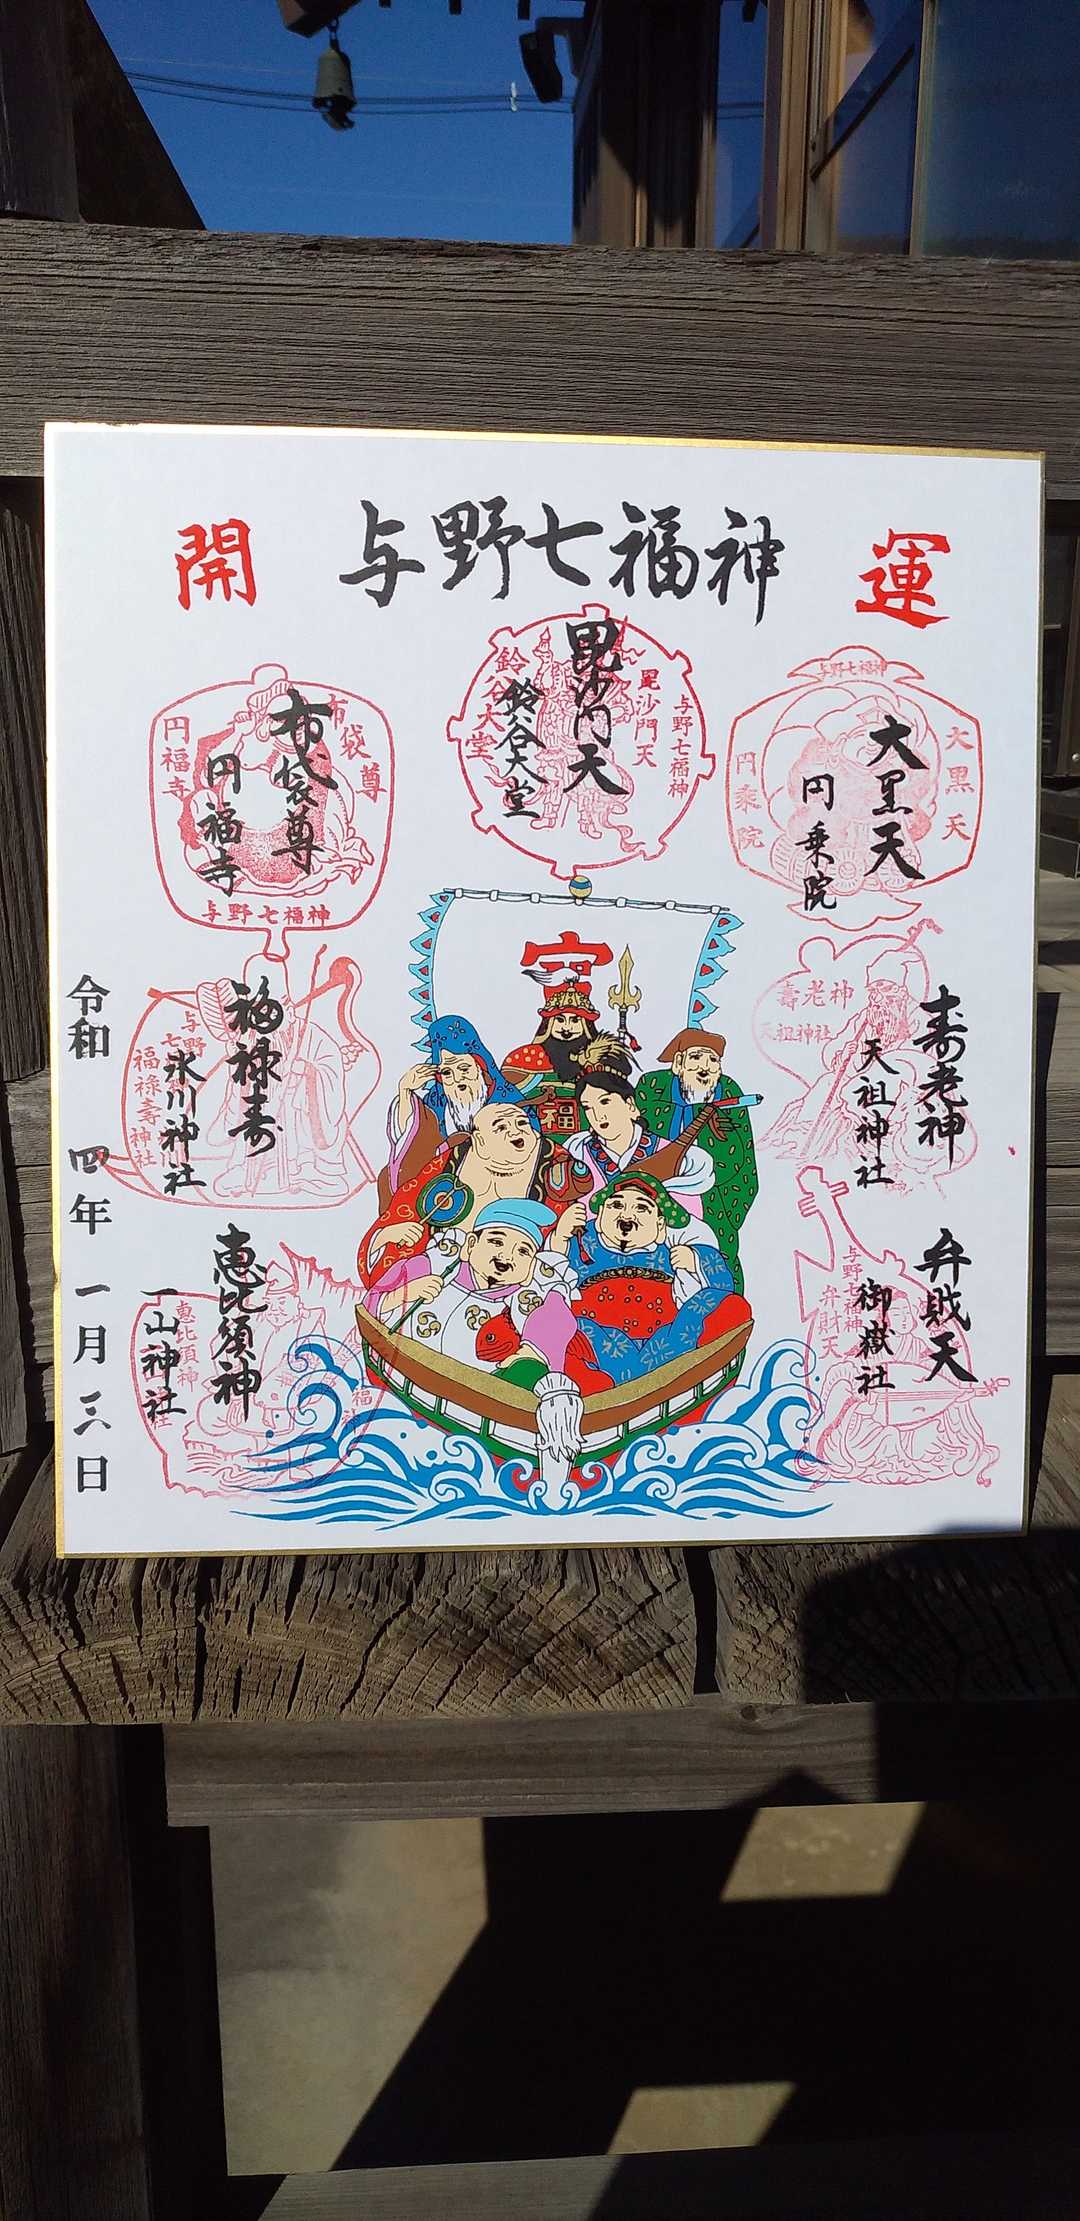 開
与野七福神
運
布袋尊
円福寺
布袋尊
円福寺
与野七福神
毘沙門天
鈴谷大堂
与野七福神
毘沙門天
鈴谷大堂
与野七福神
大黒天
円乗院
大黒天
円乗院
福禄寿
氷川神社
与野七
福禄壽神社
寿老神
天祖神社
壽老神
天祖神社
恵比須神
一山神社
恵比須神
弁財天
御嶽社
与野七福神
弁財天
福
令和四年一月三日